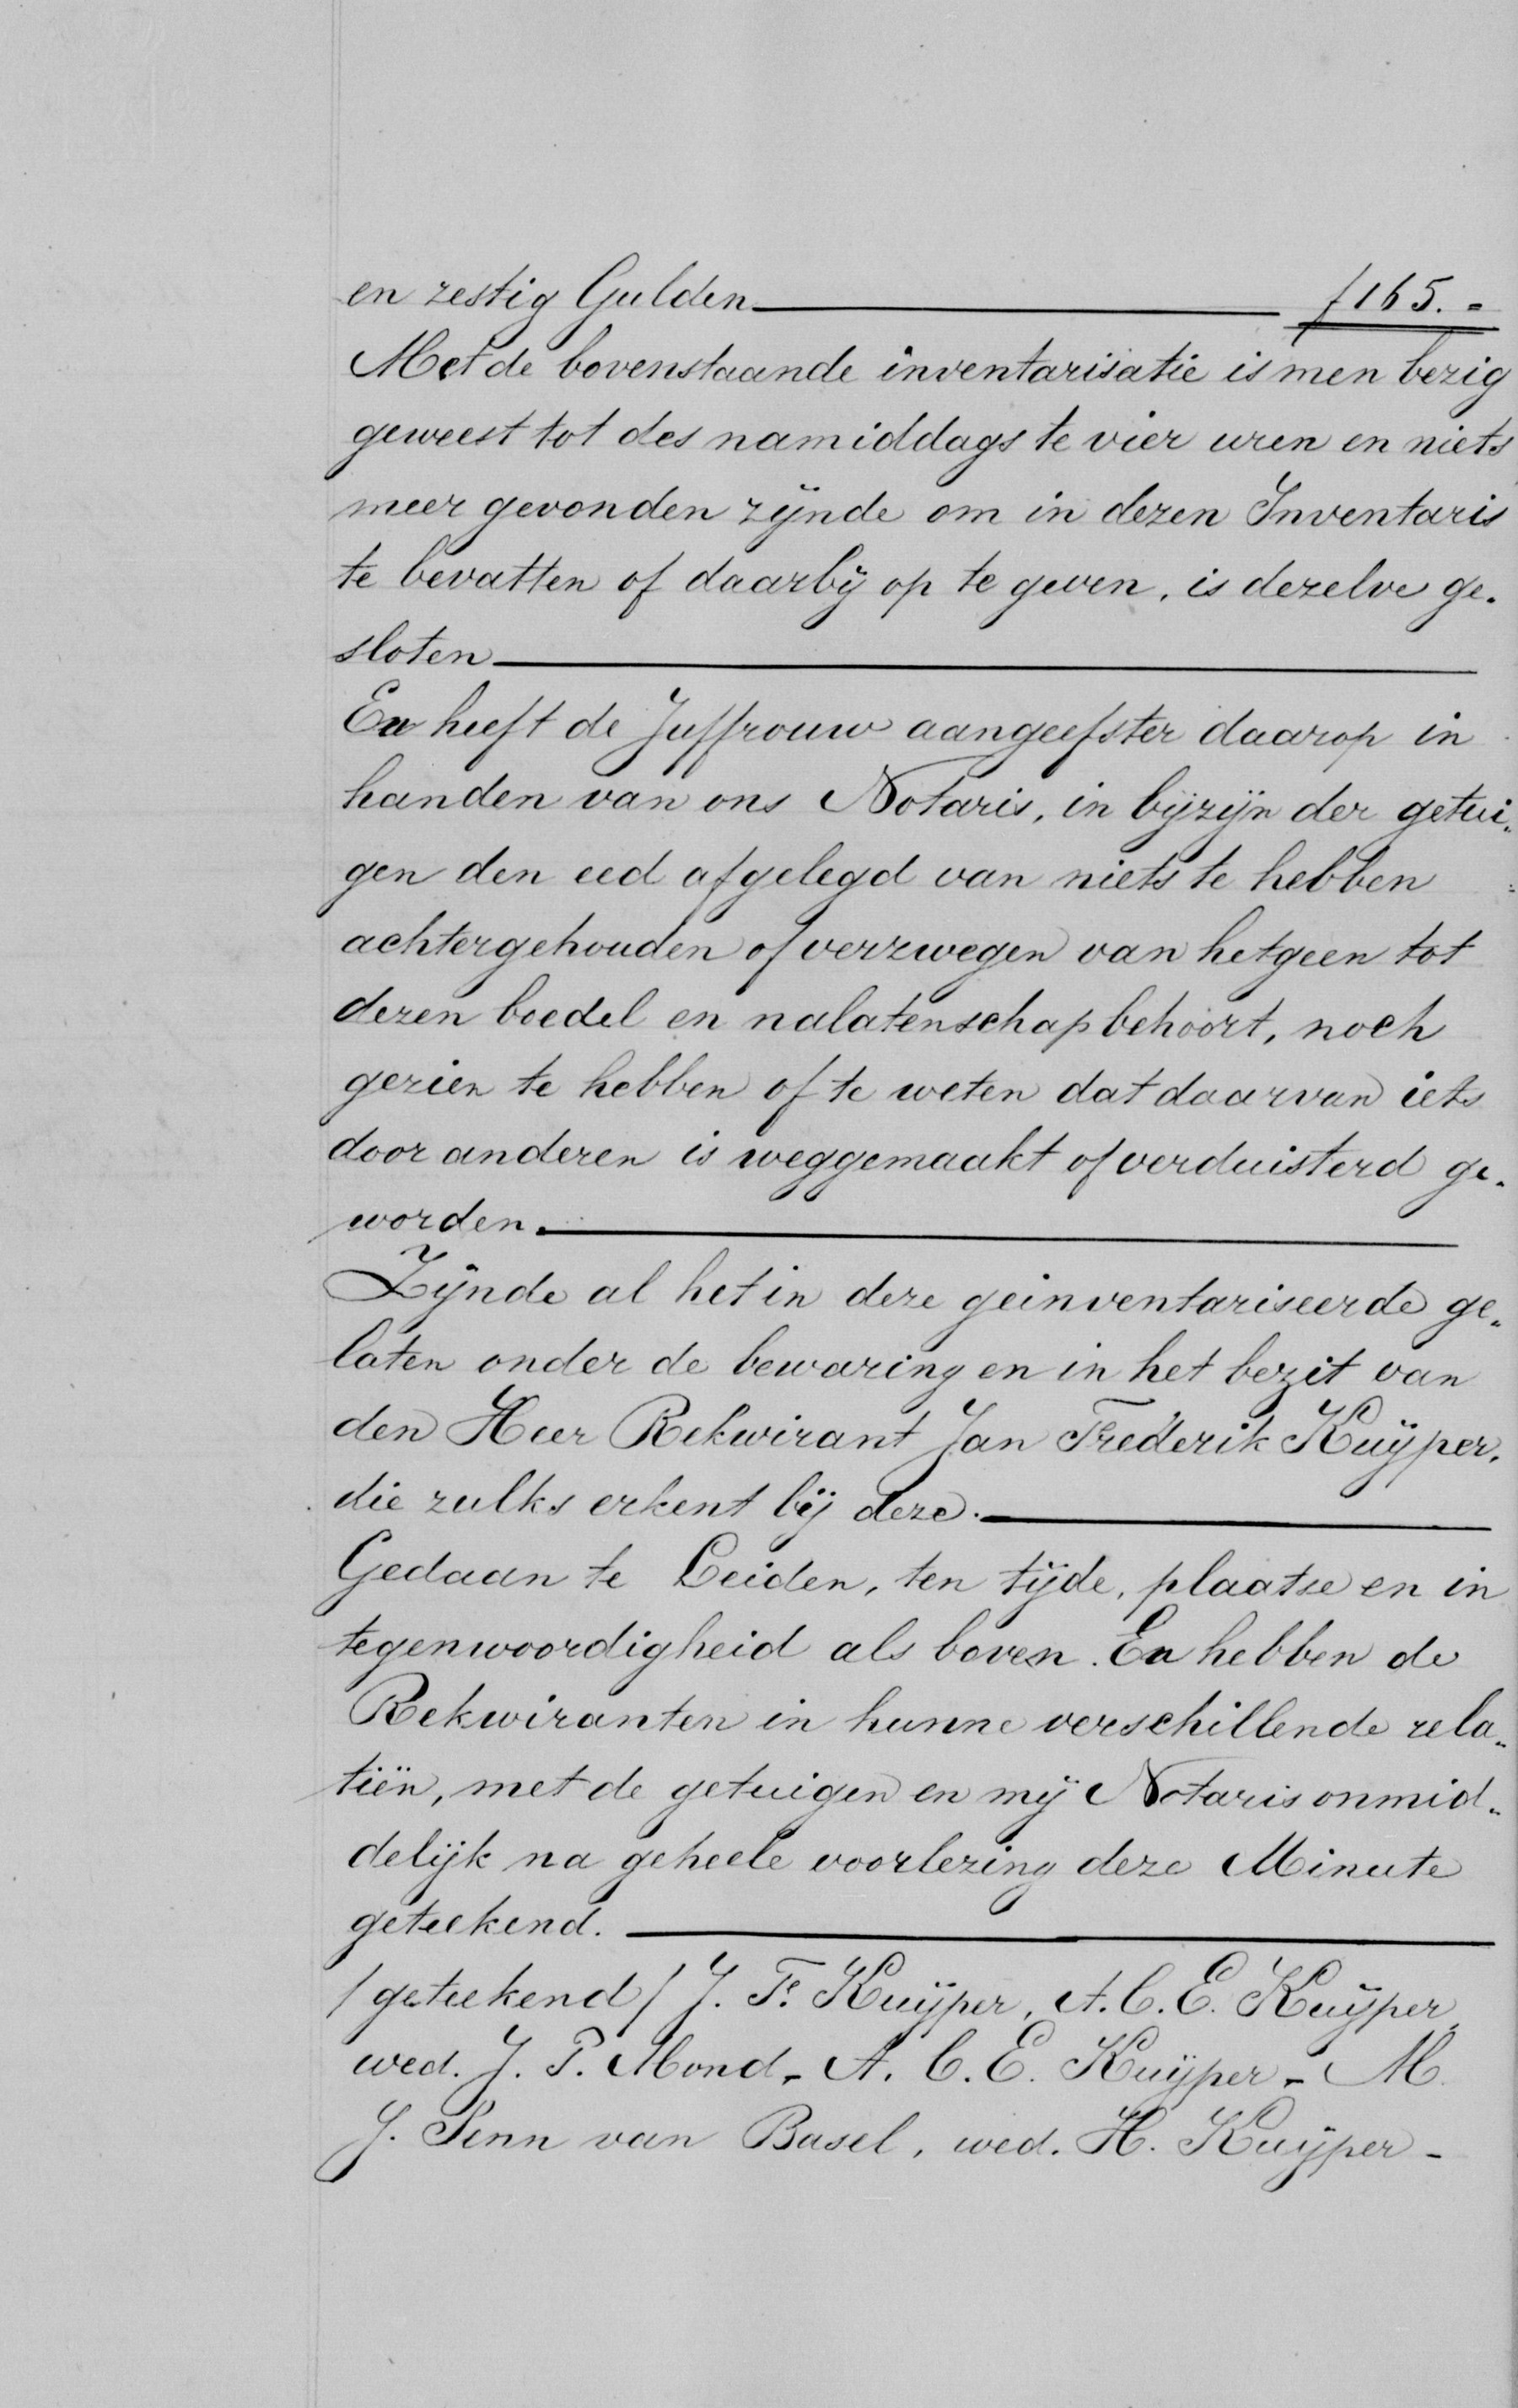 en zestig Gulden ƒ165.=
Met de bovenstaande inventarisatie is men bezig
geweest tot des namiddags te vier uren en niets
meer gevonden zijnde om in dezen Inventaris
te bevatten of daarbij op te geven, is dezelve ge-
sloten
En heeft de Juffrouw aangeefster daarop in
handen van ons Notaris, in bijzijn der getui„
gen den eed afgelegd van niets te hebben
achtergehouden of verzwegen van hetgeen tot
dezen boedel en nalatenschap behoort, noch
gezien te hebben of te weten dat daarvan iets
door anderen is weggemaakt of verduisterd ge-
worden.
Zijnde al het in deze geinventariseerde ge„
laten onder de bewaring en in het bezit van
den Heer Rekwirant Jan Frederik Kuijper,
die zulks erkent bij deze.
Gedaan te Leiden, ten tijde, plaatse en in
tegenwoordigheid als boven. En hebben de
Rekwiranten in hunne verschillende rela„
tiën, met de getuigen en mij Notaris onmid„
delijk na geheele voorlezing deze Minute
geteekend.
/geteekend/ J. F. Kuijper, A. C. E. Kuijper,
wed. J. P. Mond - A. C. E. Kuijper - M.
J. Penn van Basel, wed. H. Kuijper -